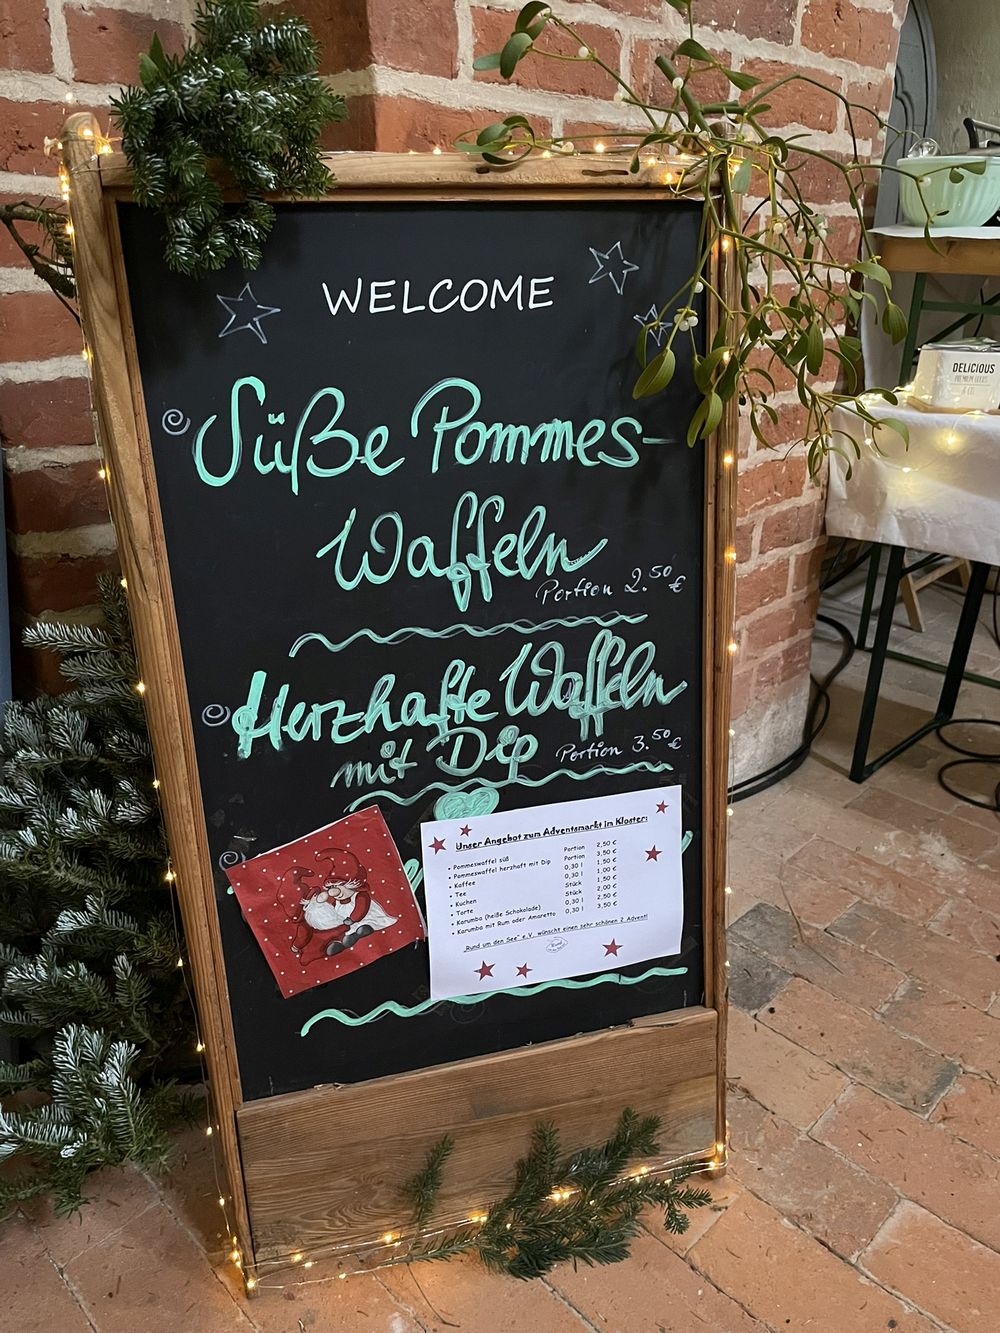 WELCOME
Süße Pommes-
Waffeln
Portion 2.50 €
Herzhafte Waffeln
mit Dip
Portion 3.50 €
Unser Angebot zum Adventsmarkt im Kloster:
• Pommeswaffel süß Portion 2,50 €
• Pommeswaffel herzhaft mit Dip Portion 3,50 €
• Kaffee 0,30 l 1,50 €
• Tee 0,30 l 1,00 €
• Kuchen Stück 1,50 €
• Torte Stück 2,00 €
• Karumba (heiße Schokolade) 0,30 l 2,50 €
• Karumba mit Rum oder Amaretto 0,30 l 3,50 €
„Rund um den See" e.V. wünscht einen sehr schönen 2. Advent!
DELICIOUS
PREMIUM